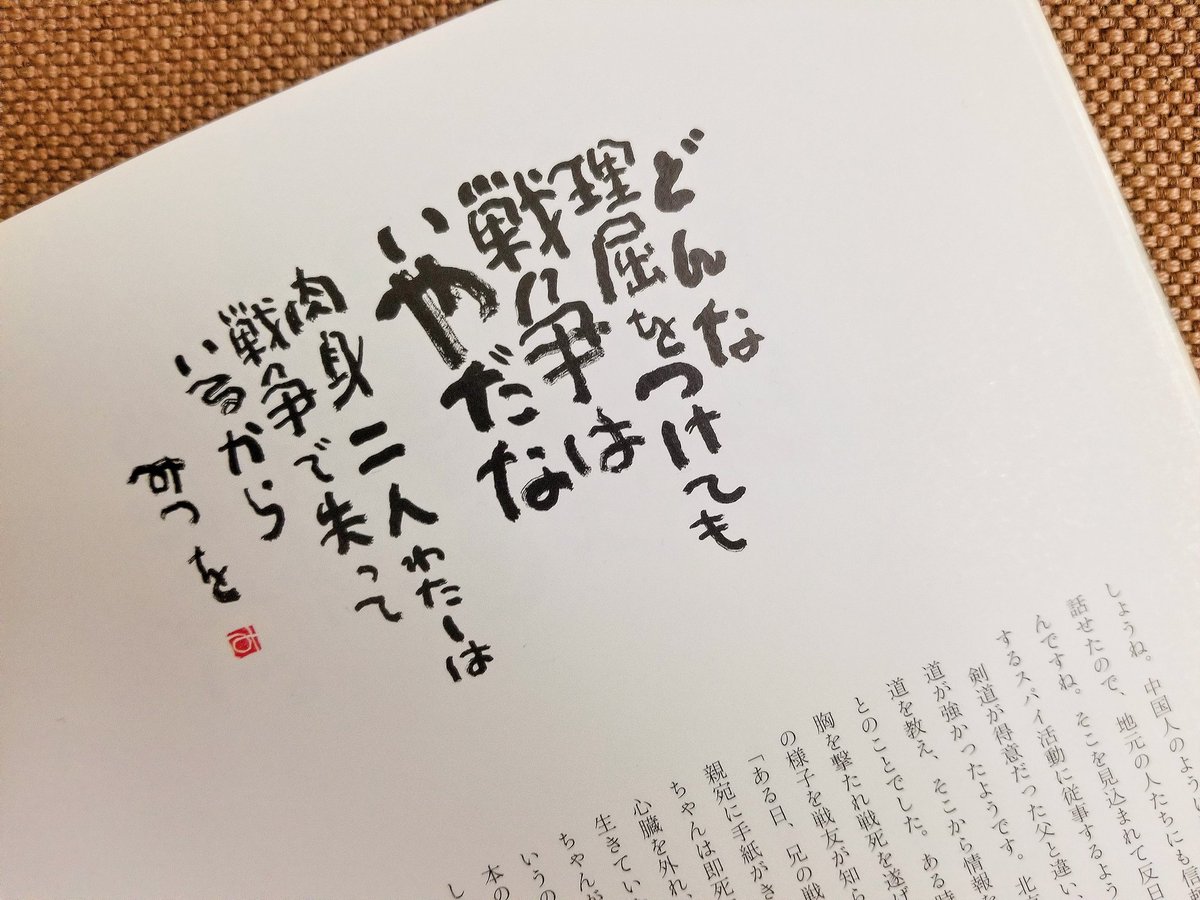 どんな
理屈をつけても
戦争は
いやだな
肉身二人わたしは
戦争で失って
いるから
みつを
しょうね。中国人のように
話せたので、地元の人たちにも信
んですね。そこを見込まれて反日
するスパイ活動に従事するよう
剣道が得意だった父と違い、
道が強かったようです。北
道を教え、そこから情報を
とのことでした。ある時
胸を撃たれ戦死を遂げ
の様子を戦友が知ら
「ある日、兄の戦
親宛に手紙がき
ちゃんは即死
心臓を外れ、
生きてい
ちゃんが
いうの
本の
し